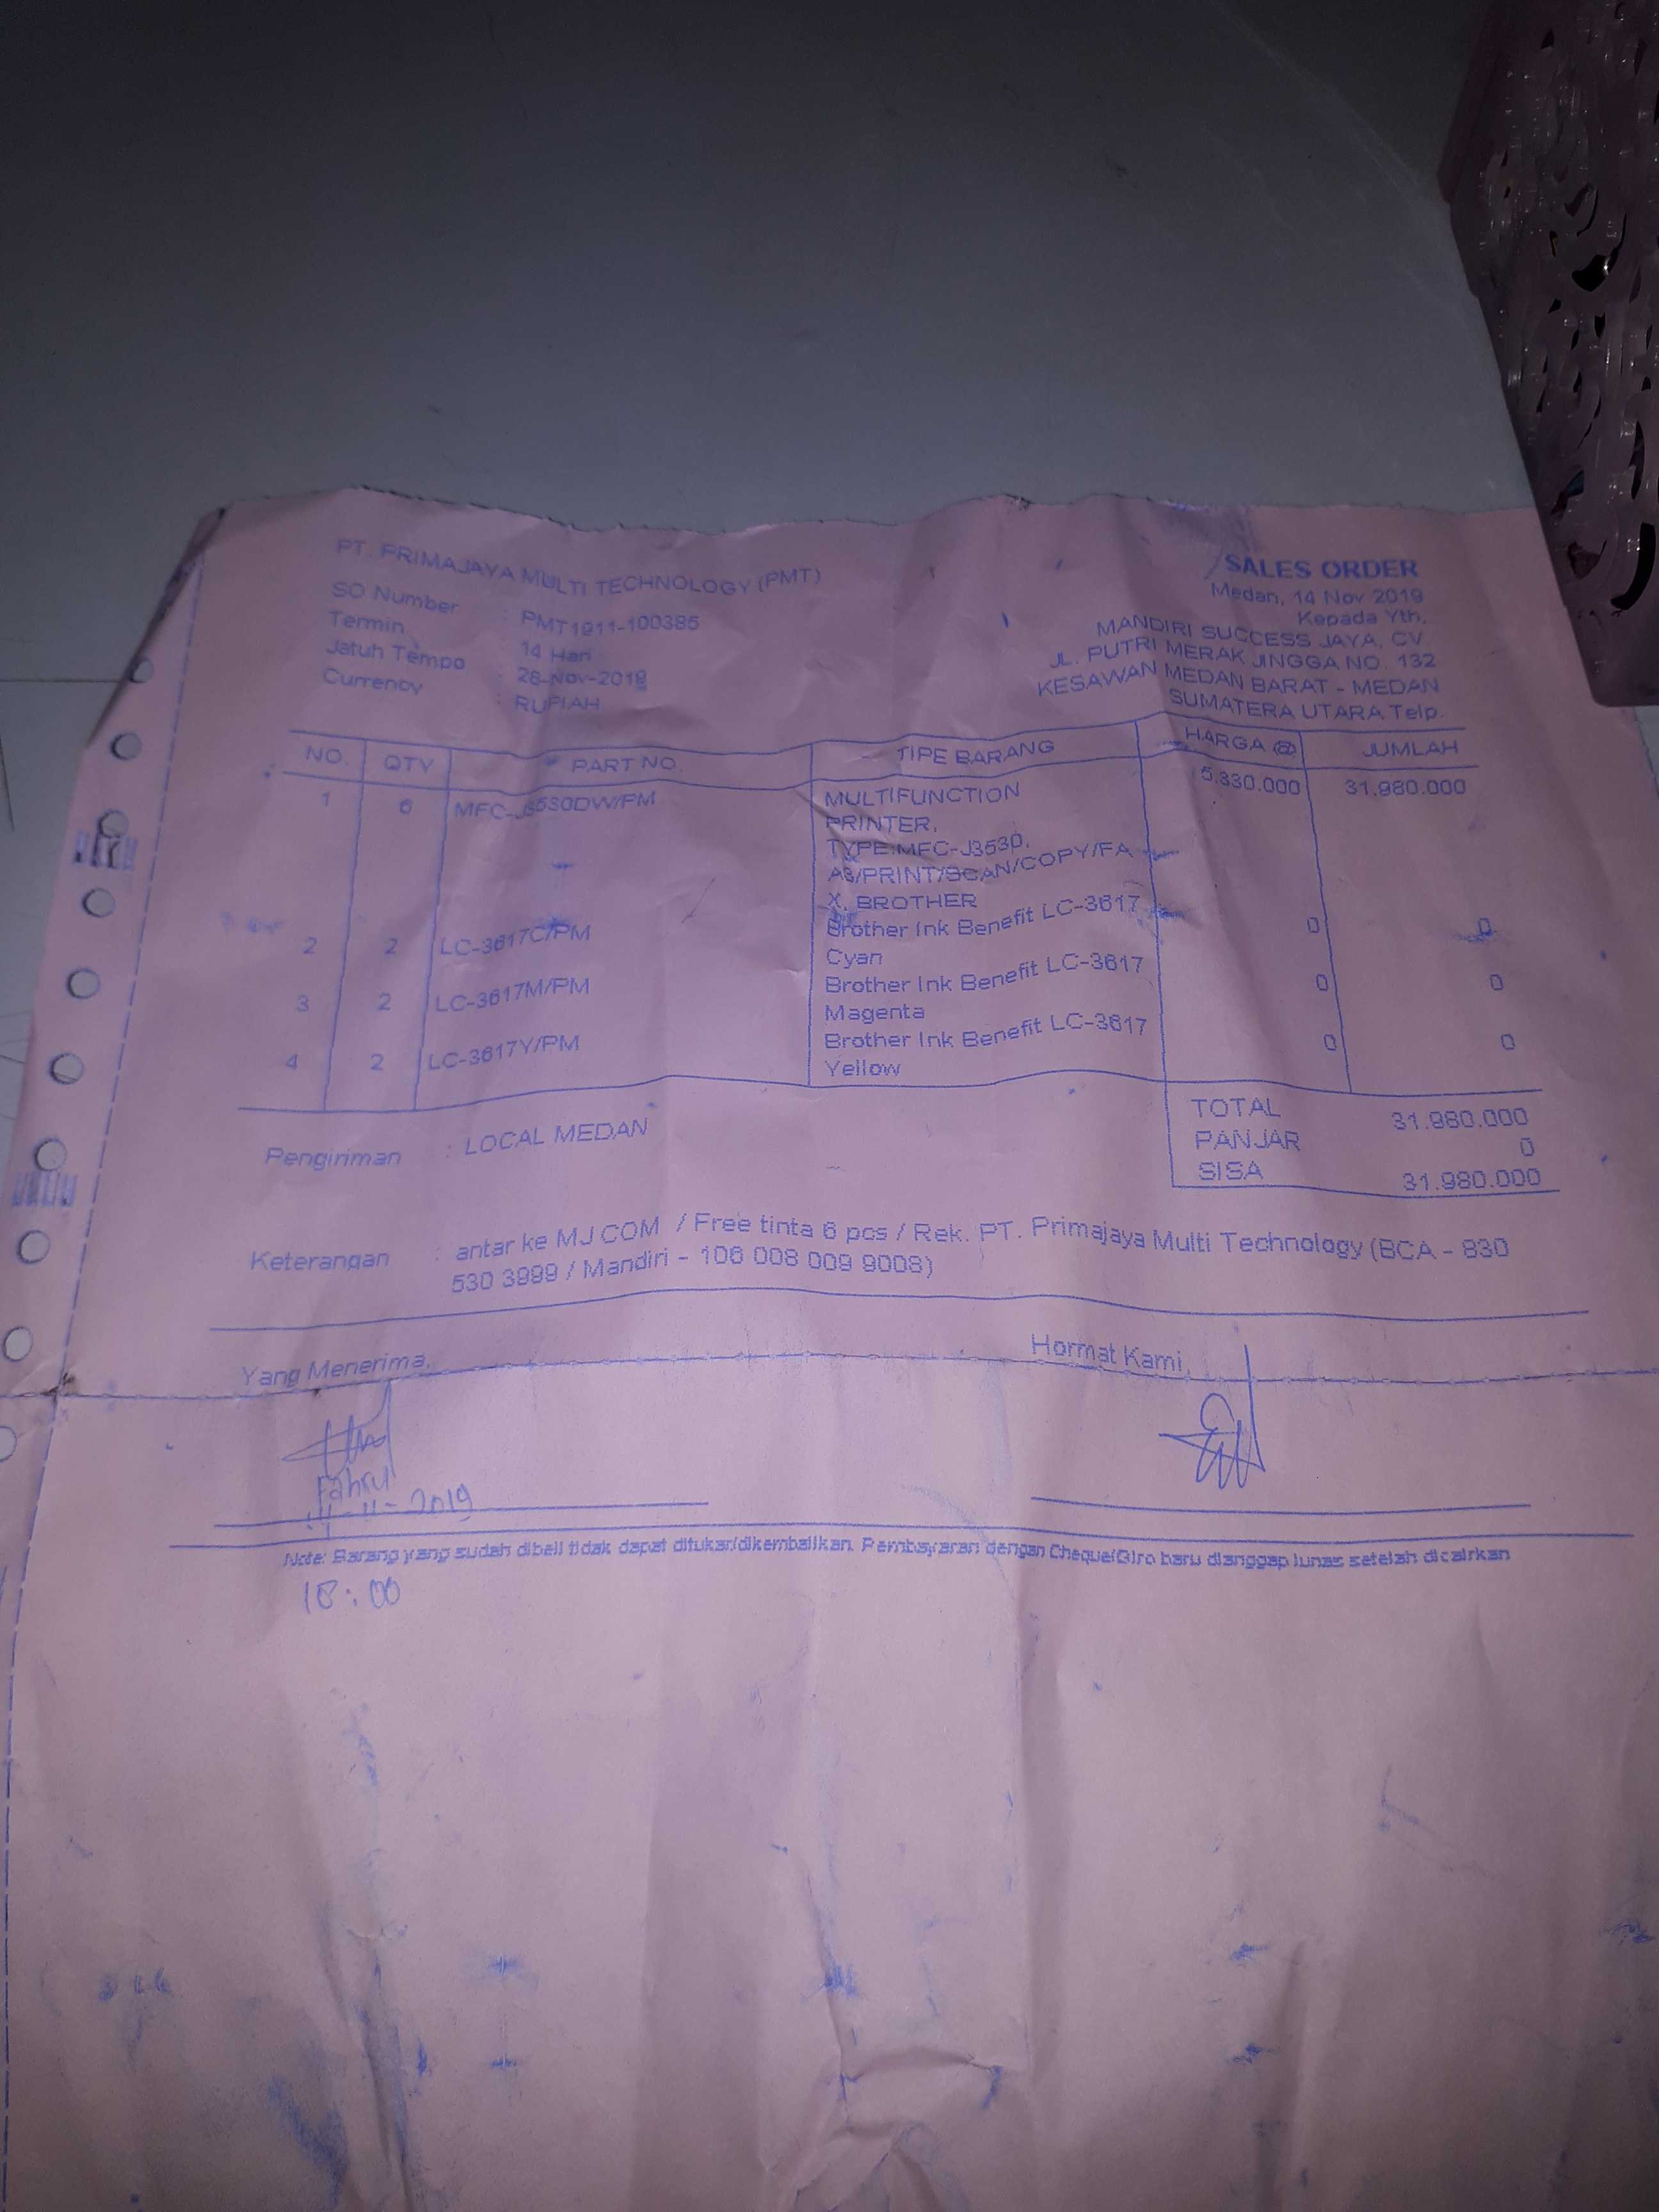 PT. PRIMAJAYA MULTI TECHNOLOGY (PMT)
SO Number : PMT1911-100385
Termin : 14 Hari
Jatuh Tempo : 28-Nov-2019
Currency : RUPIAH
SALES ORDER
Medan, 14 Nov 2019
Kepada Yth,
MANDIRI SUCCESS JAYA, CV
JL. PUTRI MERAK JINGGA NO. 132
KESAWAN MEDAN BARAT - MEDAN
SUMATERA UTARA Telp.
NO. QTY PART NO. TIPE BARANG HARGA @ JUMLAH
1 6 MFC-J3530DW/PM MULTIFUNCTION 5.330.000 31.980.000
PRINTER,
TYPE:MFC-J3530,
A3/PRINT/SCAN/COPY/FA
X, BROTHER
2 2 LC-3617C/PM Brother Ink Benefit LC-3617 0 0
Cyan
3 2 LC-3617M/PM Brother Ink Benefit LC-3617 0 0
Magenta
4 2 LC-3617Y/PM Brother Ink Benefit LC-3617 0 0
Yellow
TOTAL 31.980.000
PANJAR 0
SISA 31.980.000
Pengiriman : LOCAL MEDAN
Keterangan : antar ke MJ COM / Free tinta 6 pcs / Rek. PT. Primajaya Multi Technology (BCA - 830
530 3999 / Mandiri - 106 008 009 9008)
Yang Menerima,
Hormat Kami,
Fahrul
14-11-2019
Note: Barang yang sudah dibeli tidak dapat ditukar/dikembalikan. Pembayaran dengan Cheque/Giro baru dianggap lunas setelah dicairkan
18:00